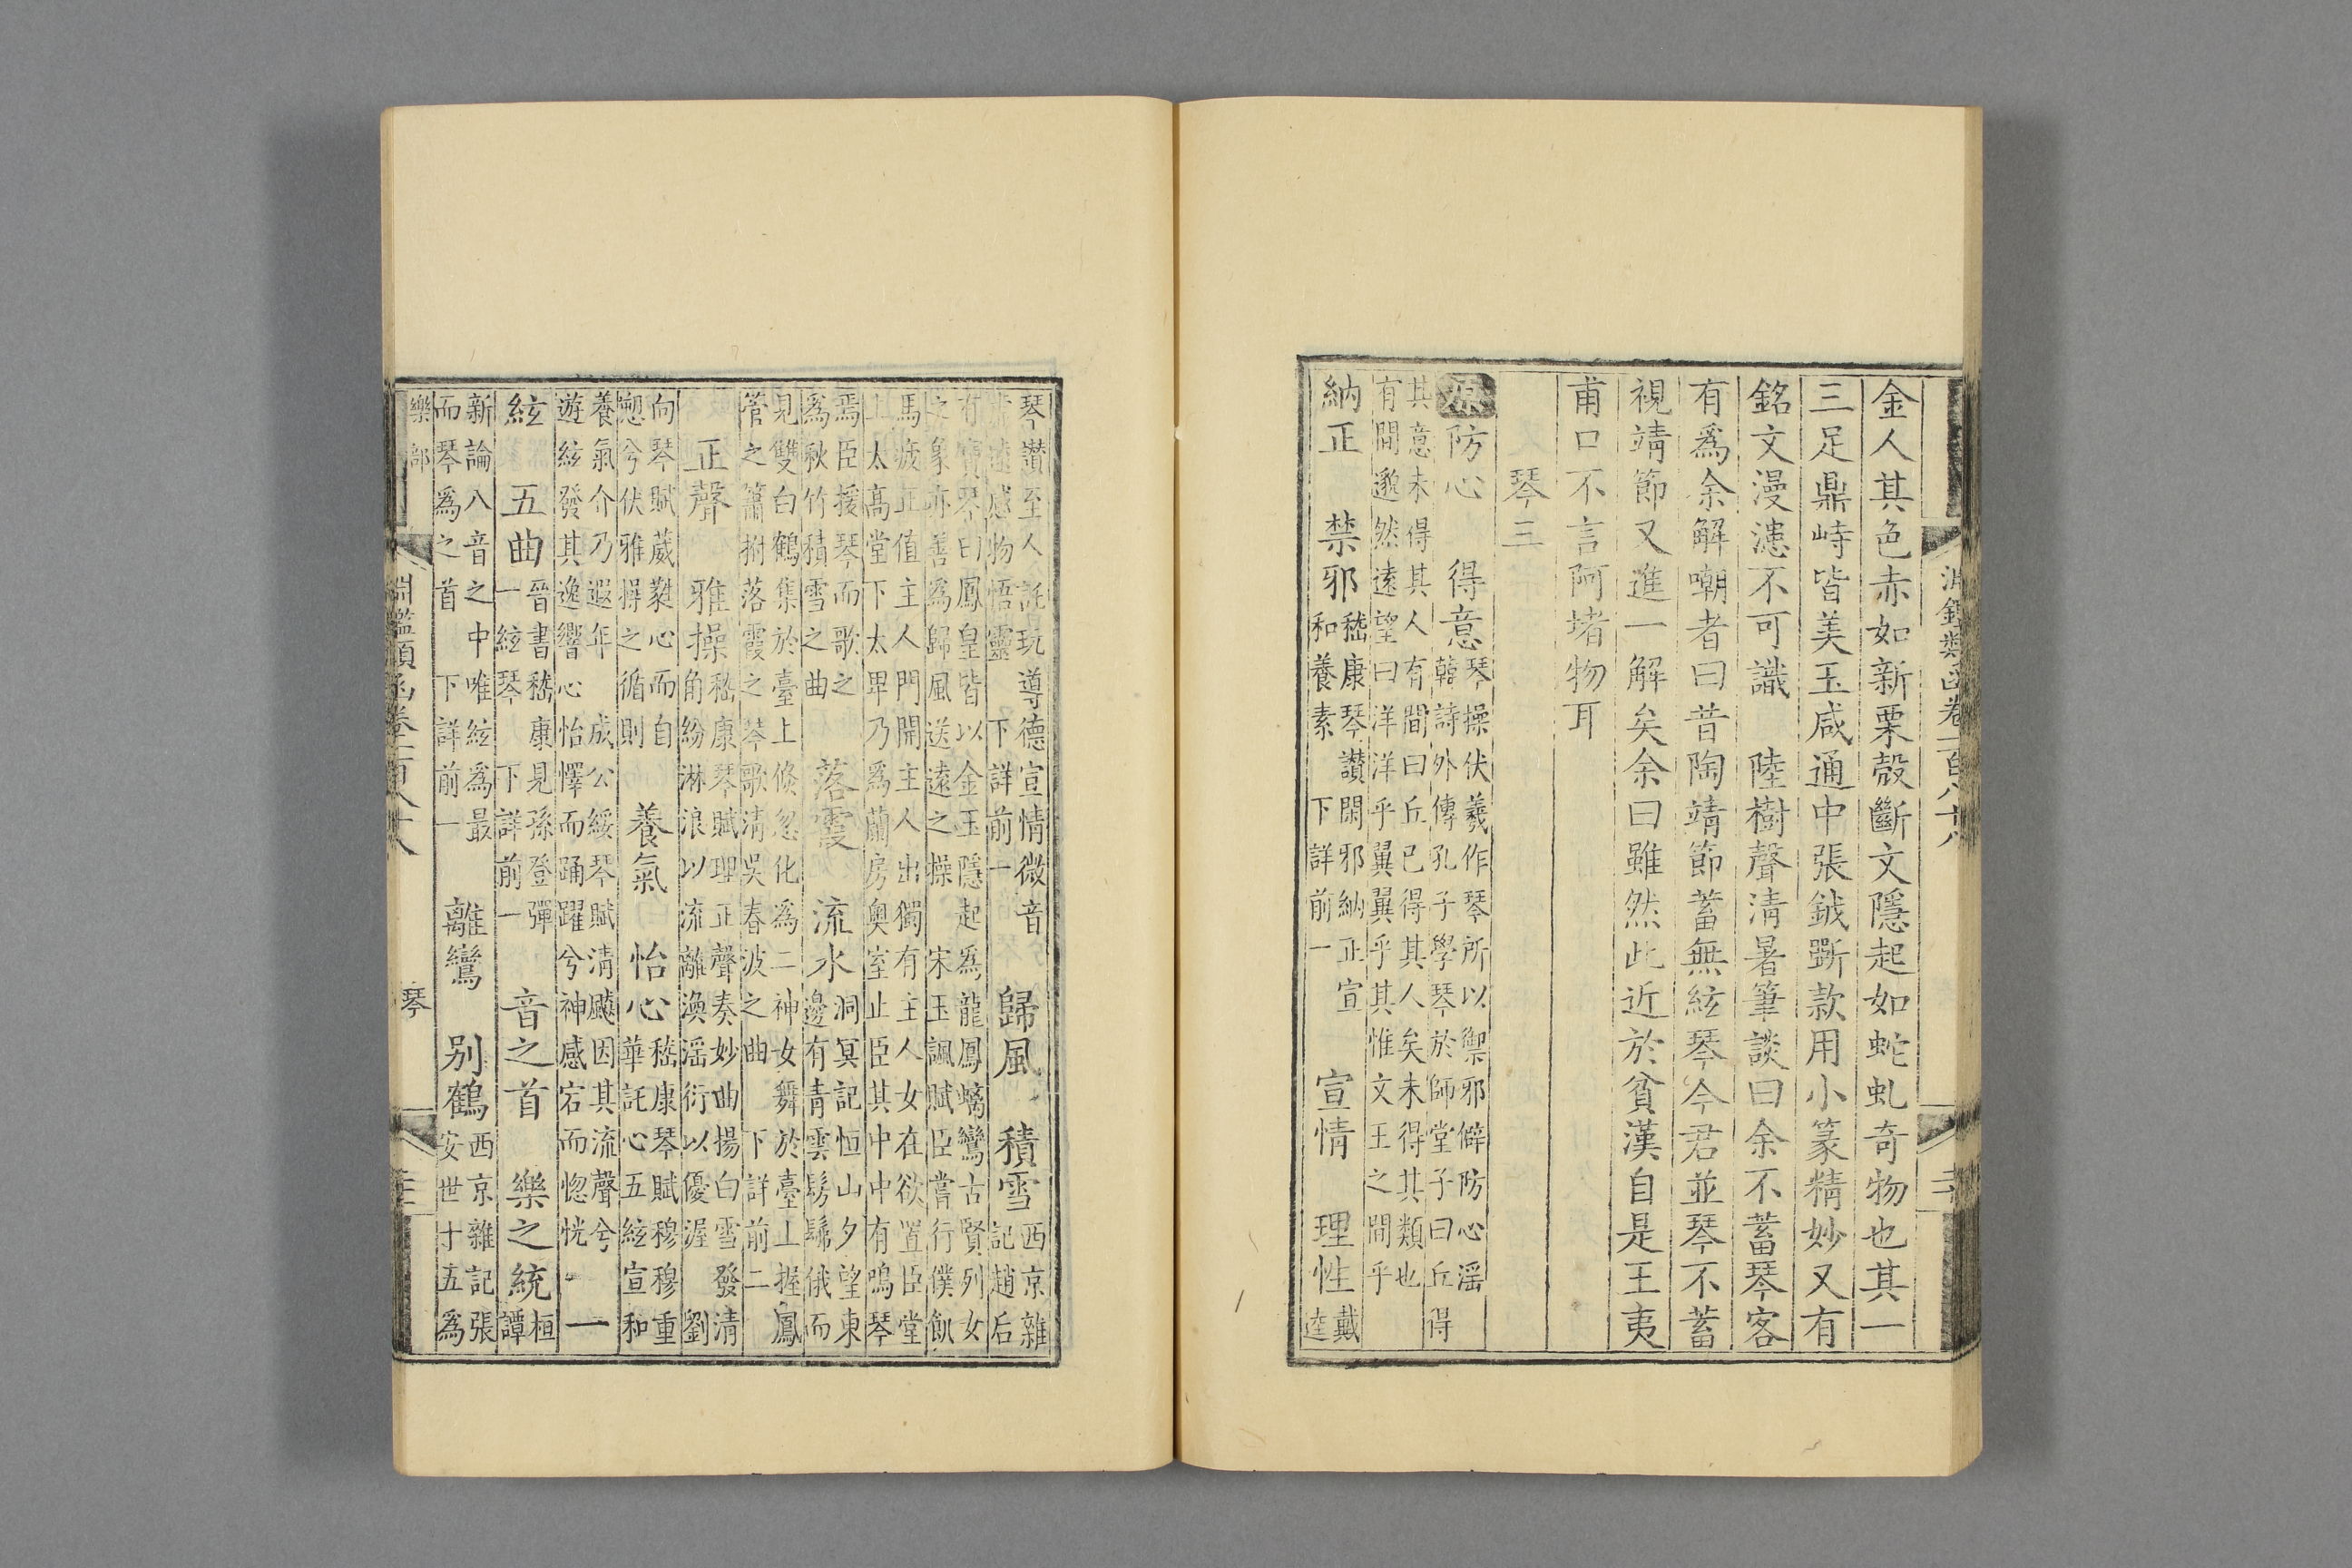 淵鑑類函卷一百八十八
金人其色赤如新栗殼斷文隱起如蛇虬奇物也其一
三足鼎峙皆美玉咸通中張鉞斲款用小篆精妙又有
銘文漫漶不可識　陸樹聲清暑筆談曰余不蓄琴客
有爲余解嘲者曰昔陶靖節蓄無絃琴今君並琴不蓄
視靖節又進一解矣余曰雖然此近於貧漢自是王夷
甫口不言阿堵物耳
琴三
原防心　得意琴操伏羲作琴所以禦邪僻防心滛
韓詩外傳孔子學琴於師堂子曰丘得
其意未得其人有間曰丘已得其人矣未得其類也
有間邈然遠望曰洋洋乎翼翼乎其惟文王之間乎
納正　禁邪嵇康琴讚閑邪納正宣
和養素　下詳前一　宣情　理性戴
逵
琴讚至人託玩導德宣情微音
清遠感物悟靈　下詳前一　歸風　積雪西京雜
記趙后
有寶琴曰鳳皇皆以金玉隱起爲龍鳳螭鸞古賢列女
之象亦善爲歸風送遠之操　宋玉諷賦臣嘗行僕飢
馬疲正值主人門開主人出獨有主人女在欲置臣堂
上太高堂下太卑乃爲蘭房奧室止臣其中中有鳴琴
焉臣援琴而歌之
爲秋竹積雪之曲　落霞　流水洞冥記恒山夕望東
邊有青雲髣髴俄而
見雙白鶴集於臺上倏忽化爲二神女舞於臺上握鳳
管之簫拊落霞之琴歌清吳春波之曲　下詳前二
正聲　雅操嵇康琴賦理正聲奏妙曲揚白雪發清
角紛淋浪以流離渙滛衍以優渥　劉
向琴賦葳蕤心而自
愬兮伏雅操之循則　養氣　怡心嵇康琴賦穆穆重
華託心五絃宣和
養氣介乃遐年　成公綏琴賦清飈因其流聲兮
遊絃發其逸響心怡懌而踊躍兮神感宕而惚恍　一
絃　五曲晉書嵇康見孫登彈
一絃琴　下詳前一　音之首　樂之統桓
譚
新論八音之中唯絃爲最
而琴爲之首　下詳前一　離鸞　別鶴西京雜記張
安世十五爲
樂部
淵鑑類函卷一百八十八
琴